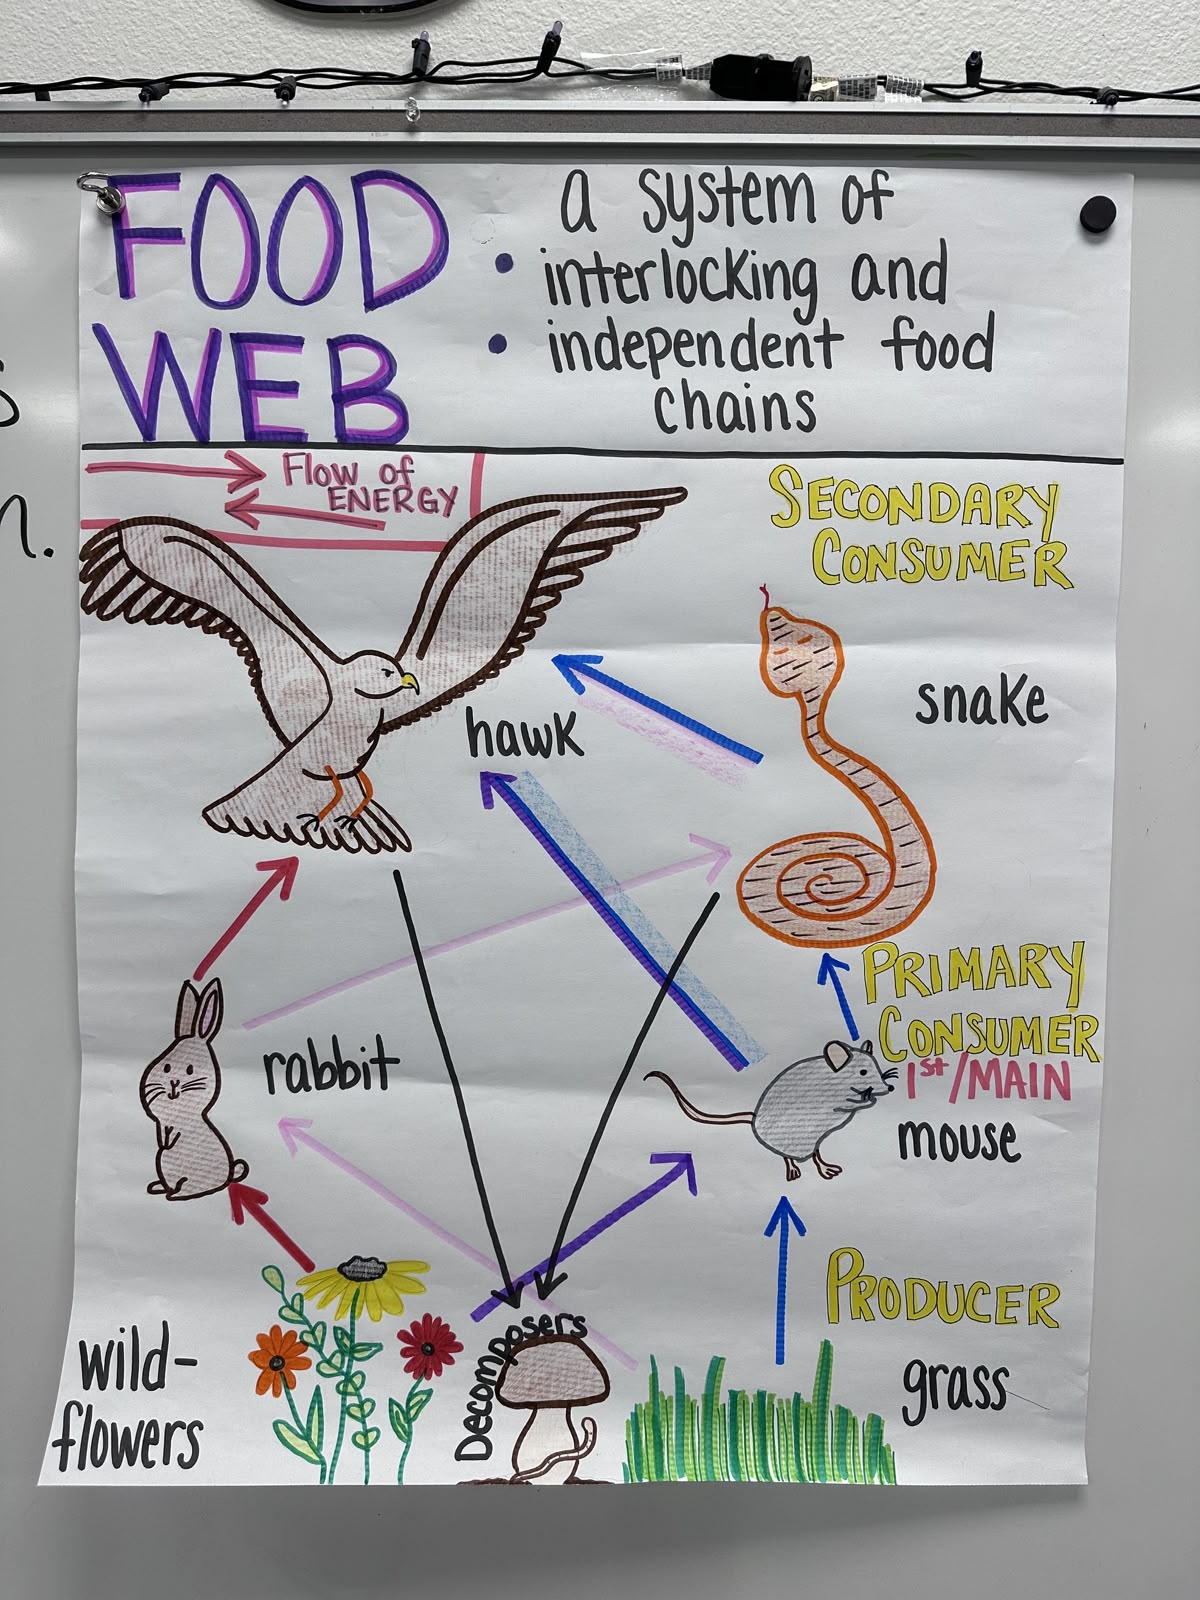 FOOD
WEB
a system of
• interlocking and
• independent food
chains
Flow of
ENERGY
SECONDARY
CONSUMER
snake
hawk
PRIMARY
CONSUMER
1st/MAIN
mouse
rabbit
PRODUCER
grass
Decomposers
wild-
flowers
s
n.